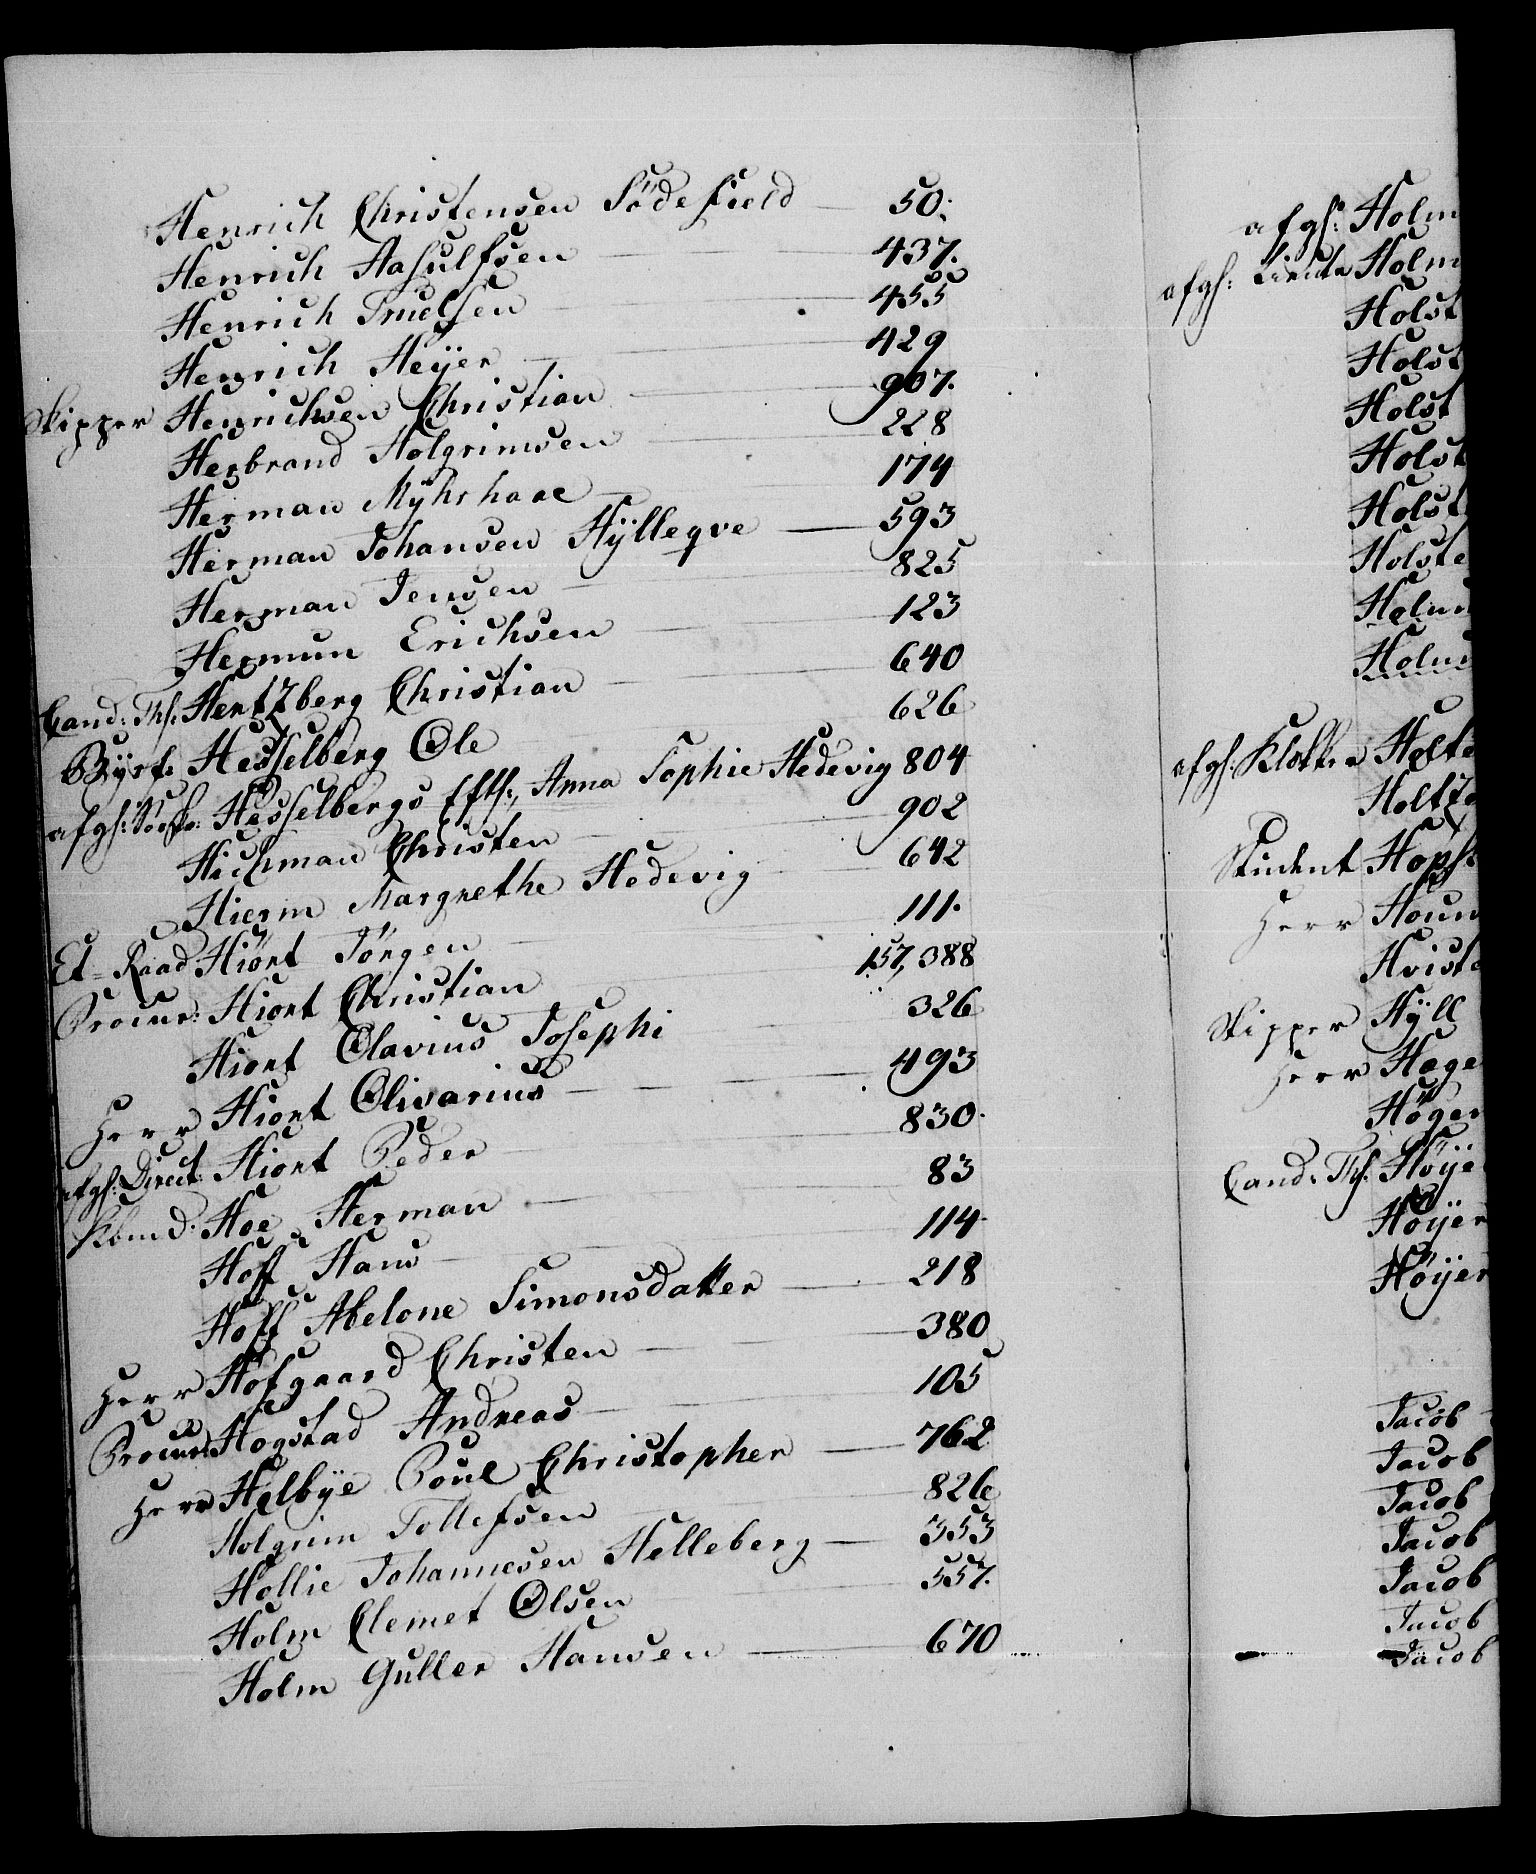 Henrich Christensen Södefield — 50.
Henrich Aasulfsen — 437.
Henrich Truelsen — 455
Henrich Heÿer — 429
Skipper Henrichsen Christian — 907.
Herbrand Holgrimsen — 228
Herman Mÿhrhaae — 174
Herman Johansen Hÿlleqve — 593
Herman Jensen — 825
Hermun Erichsen — 123
Cand: Th: Hertzberg Christian — 640
Byef: Hesselberg Ole — 626
afgh: Hesselbergs Efth:, Anna Sophie Hedevig 804
Hichman Christen — 902
Hierm Margrethe Hedevig — 642
Et=Raad Hiört Jörgen — 111.
Procur: Hiort Christian — 157, 388
Hiort Olavius Josephi — 326
Herr Hiort Olivarius — 493
afgh: Direct: Hiort Peder — 830.
Kbmd: Hoe Herman — 83
Hoff Hans — 114
Hoff Abelone Simonsdatter — 218
Herr Hofgaard Christen — 380
Procur: Hogstad Andreas — 105
Herr Holbÿe Poul Christopher — 762
Holgrim Tollefsen — 826
Hollie Johannesen Helleberg — 353
Holm Clemet Olsen — 557.
Holm Guller Hansen — 670
afgh: Holm
afgh: Lieutn Holm
Holst
Holst
Holst
Holst
Holst
Holste
Holm
Holm
afgh: Klokker Holte
Holtz
Student Hopst
Herr Houn
Hvist
Skipper Hÿll
Herr Hage
Höger
Cand: Th: Höÿe
Höÿer
Höÿer
Jacob
Jacob
Jacob
Jacob
Jacob
Jacob
Jacob